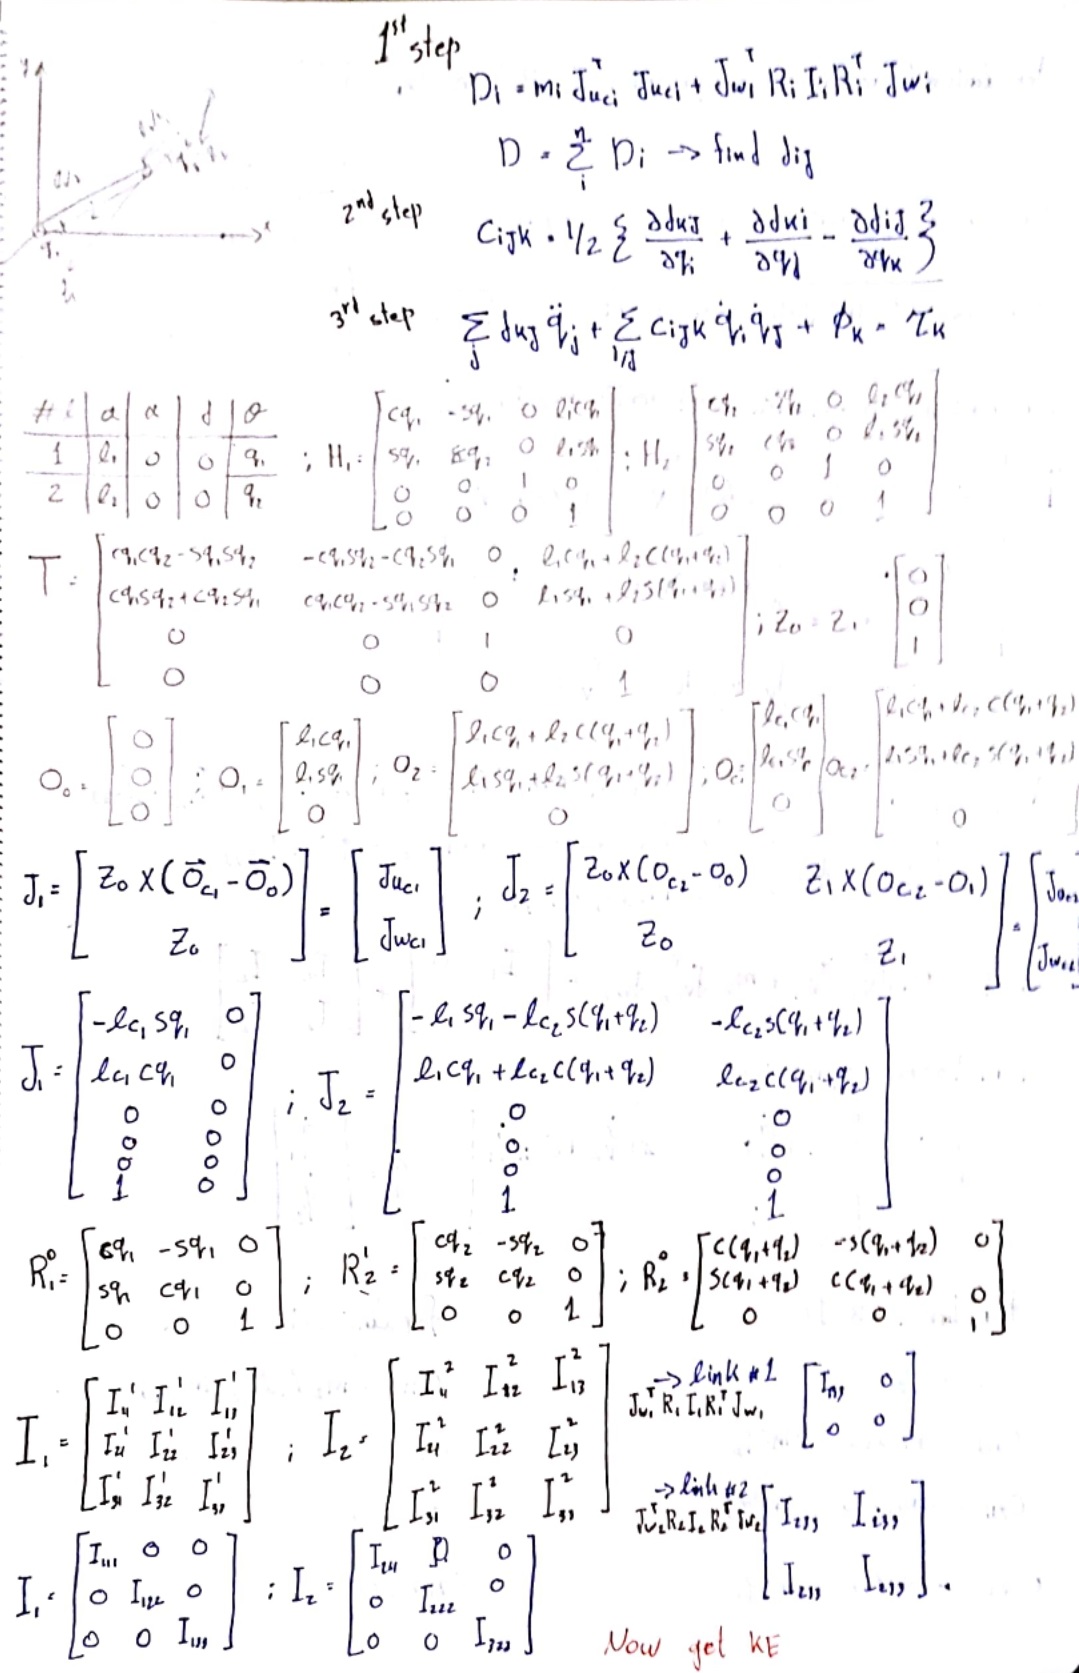 1st step
Di = mi Jvci^T Jvci + Jwi^T Ri Ii Ri^T Jwi
D = Σ_i^n Di → find dij
2nd step
Cijk = 1/2 { ∂dkj/∂qi + ∂dki/∂qj - ∂dij/∂qk }
3rd step
Σ_j dkj q̈j + Σ_i,j Cijk q̇i q̇j + ϕk = τk
# i | a | α | d | θ
1 | l1 | 0 | 0 | q1
2 | l2 | 0 | 0 | q2
; H1 = [cq1 -sq1 0 l1cq1
sq1 cq1 0 l1sq1
0 0 1 0
0 0 0 1]
; H2 = [
0 0 1 0
0 0 0 1]
T = [cq1cq2-sq1sq2 -cq1sq2-cq2sq1 0 l1cq1+l2c(q1+q2)
cq1sq2+cq2sq1 cq1cq2-sq1sq2 0 l1sq1+l2s(q1+q2)
0 0 1 0
0 0 0 1]
; Z0 = Z1 = [0
0
1]
O0 = [0
0
0]
; O1 = [l1cq1
l1sq1
0]
; O2 = [l1cq1+l2c(q1+q2)
l1sq1+l2s(q1+q2)
0]
; Oc1 = [lc1cq1
lc1sq1
0]
Oc2 = [l1cq1+lc2c(q1+q2)
l1sq1+lc2s(q1+q2)
0]
J1 = [Z0 X (O⃗c1 - O⃗0)
Z0] = [Jvc1
Jwc1]
; J2 = [Z0 X (Oc2 - O0) Z1 X (Oc2 - O1)
Z0 Z1] = [Jvc2
Jwc2
J1 = [-lc1 sq1 0
lc1 cq1 0
0 0
0 0
0 0
1 0]
; J2 = [-l1 sq1 - lc2 s(q1+q2) -lc2 s(q1+q2)
l1cq1 + lc2 c(q1+q2) lc2 c(q1+q2)
0 0
0 0
0 0
1 1]
R1^0 = [cq1 -sq1 0
sq1 cq1 0
0 0 1]
; R2^1 = [cq2 -sq2 0
sq2 cq2 0
0 0 1]
; R2^0 = [c(q1+q2) -s(q1+q2) 0
s(q1+q2) c(q1+q2) 0
0 0 1]
I1 = [I11^1 I12^1 I13^1
I21^1 I22^1 I23^1
I31^1 I32^1 I33^1]
; I2 = [I11^2 I12^2 I13^2
I21^2 I22^2 I23^2
I31^2 I32^2 I33^2]
→ link #1
Jw1^T R1 I1 R1^T Jw1 [I133 0
0 0]
→ link #2
Jw2^T R2 I2 R2^T Jw2 [I233 I233
I233 I233].
I1 = [I111 0 0
0 I122 0
0 0 I133]
; I2 = [I211 0 0
0 I222 0
0 0 I233]
Now get KE